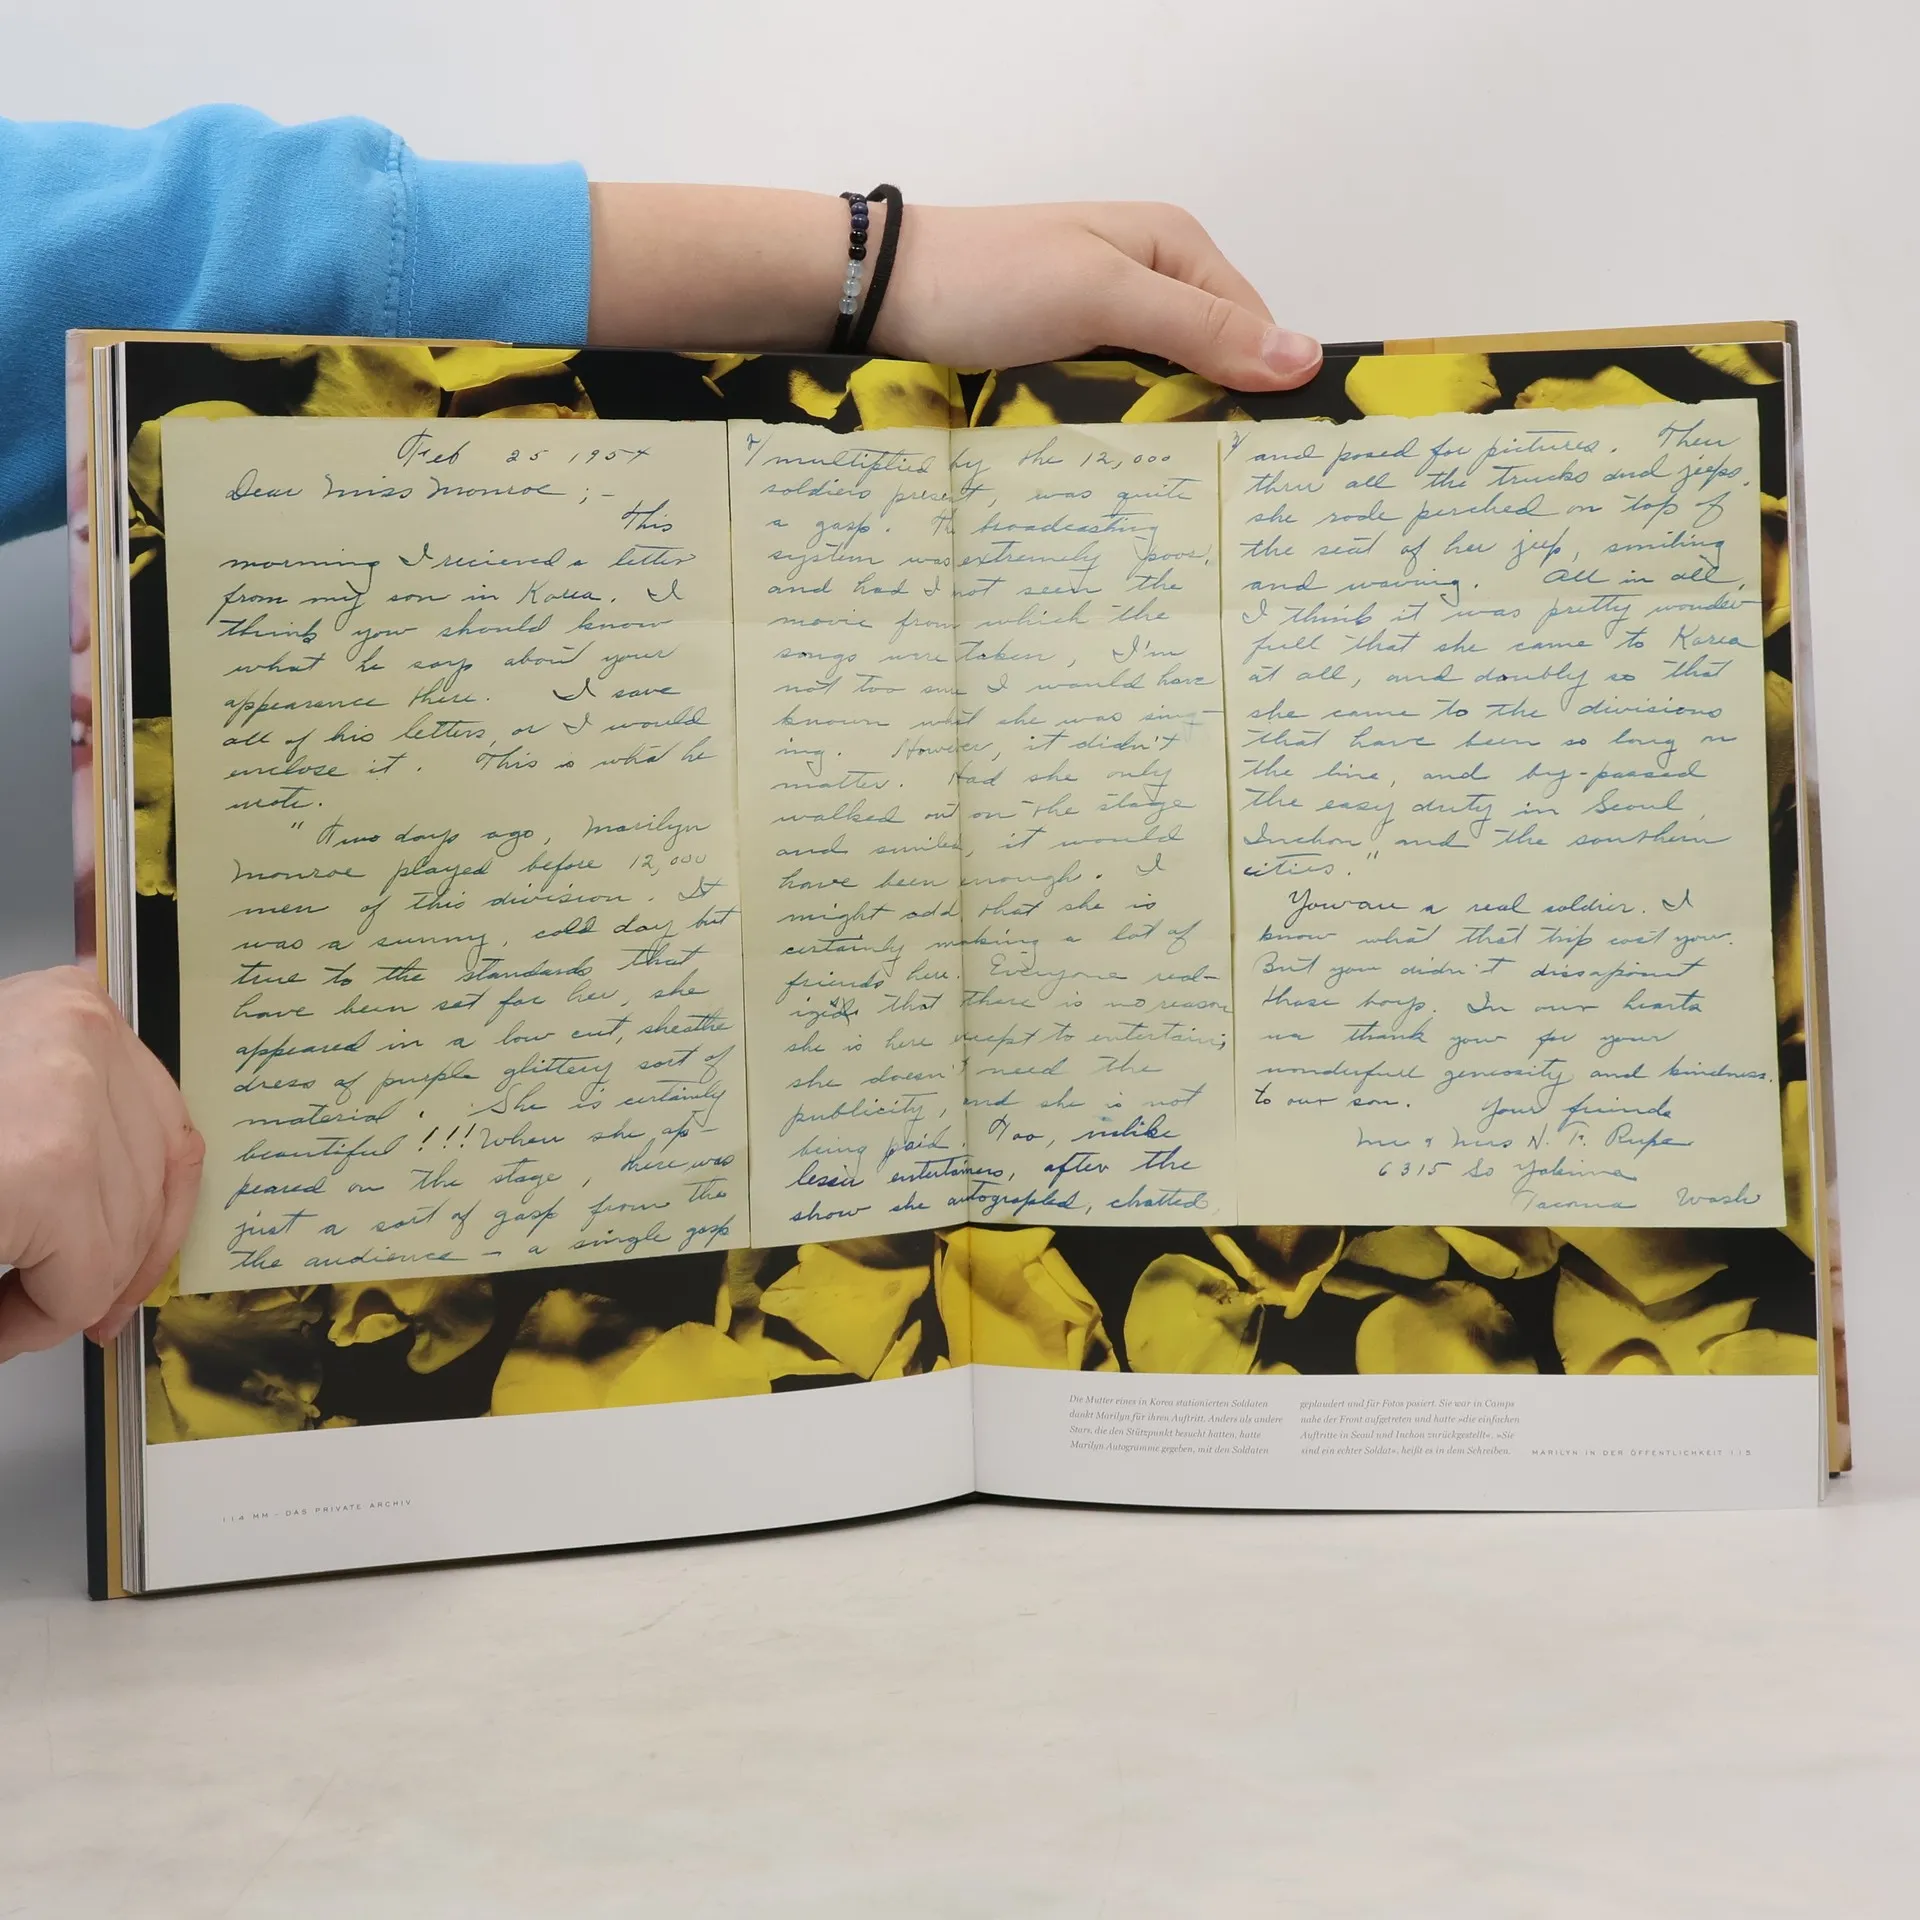 Feb 25 1954
Dear Miss Monroe ; -
This
morning I recieved a letter
from my son in Korea. I
think you should know
what he says about your
appearance there. I save
all of his letters, or I would
enclose it. This is what he
wrote.
" Two days ago, Marilyn
Monroe played before 12,000
men of this division. It
was a sunny, cold day but
true to the standards that
have been set for her, she
appeared in a low cut, sheathe
dress of purple glittery sort of
material. She is certainly
beautiful!!! When she ap-
peared on the stage, there was
just a sort of gasp from the
the audience - a single gasp
2/ multiplied by the 12,000
soldiers present, was quite
a gasp. The broadcasting
system was extremely poor,
and had I not seen the
movie from which the
songs were taken, I'm
not too sure I would have
known what she was sing-
ing. However, it didn't
matter. Had she only
walked out on the stage
and smiled, it would
have been enough. I
might add that she is
certainly making a lot of
friends here. Everyone real-
that there is no reason
she is here except to entertain;
she doesn't need the
publicity, and she is not
being paid. Too, unlike
lesser entertainers, after the
show she autographed, chatted,
3/ and posed for pictures. Then
thru all the trucks and jeeps,
she rode perched on top of
the seat of her jeep, smiling
and waving. All in all,
I think it was pretty wonder-
full that she came to Korea
at all, and doubly so that
she came to the divisions
that have been so long on
the line, and by-passed
the easy duty in Seoul,
Inchon and the southern
cities."
You are a real soldier. I
know what that trip cost you.
But you didn't dissapoint
those boys. In our hearts
we thank you for your
wonderfull generosity and kindness.
to our son. Your freinds
Mr & Mrs N. F. Rupe
6315 So Yakima
Tacoma Wash
Die Mutter eines in Korea stationierten Soldaten
dankt Marilyn für ihren Auftritt. Anders als andere
Stars, die den Stützpunkt besucht hatten, hatte
Marilyn Autogramme gegeben, mit den Soldaten
geplaudert und für Fotos posiert. Sie war in Camps
nahe der Front aufgetreten und hatte »die einfachen
Auftritte in Seoul und Inchon zurückgestellt«. »Sie
sind ein echter Soldat«, heißt es in dem Schreiben.
MARILYN IN DER ÖFFENTLICHKEIT 115
114 MM - DAS PRIVATE ARCHIV